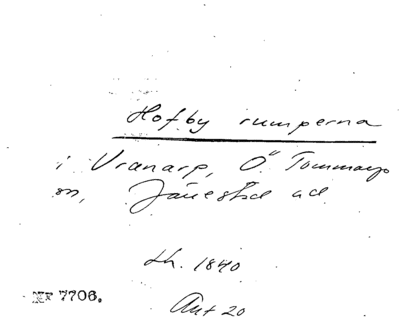 Hofby rumperna
i Vranarp, Ö. Tommarp
sn, Järrestad hd
Lh. 1840
NF 7706.
Ant 20